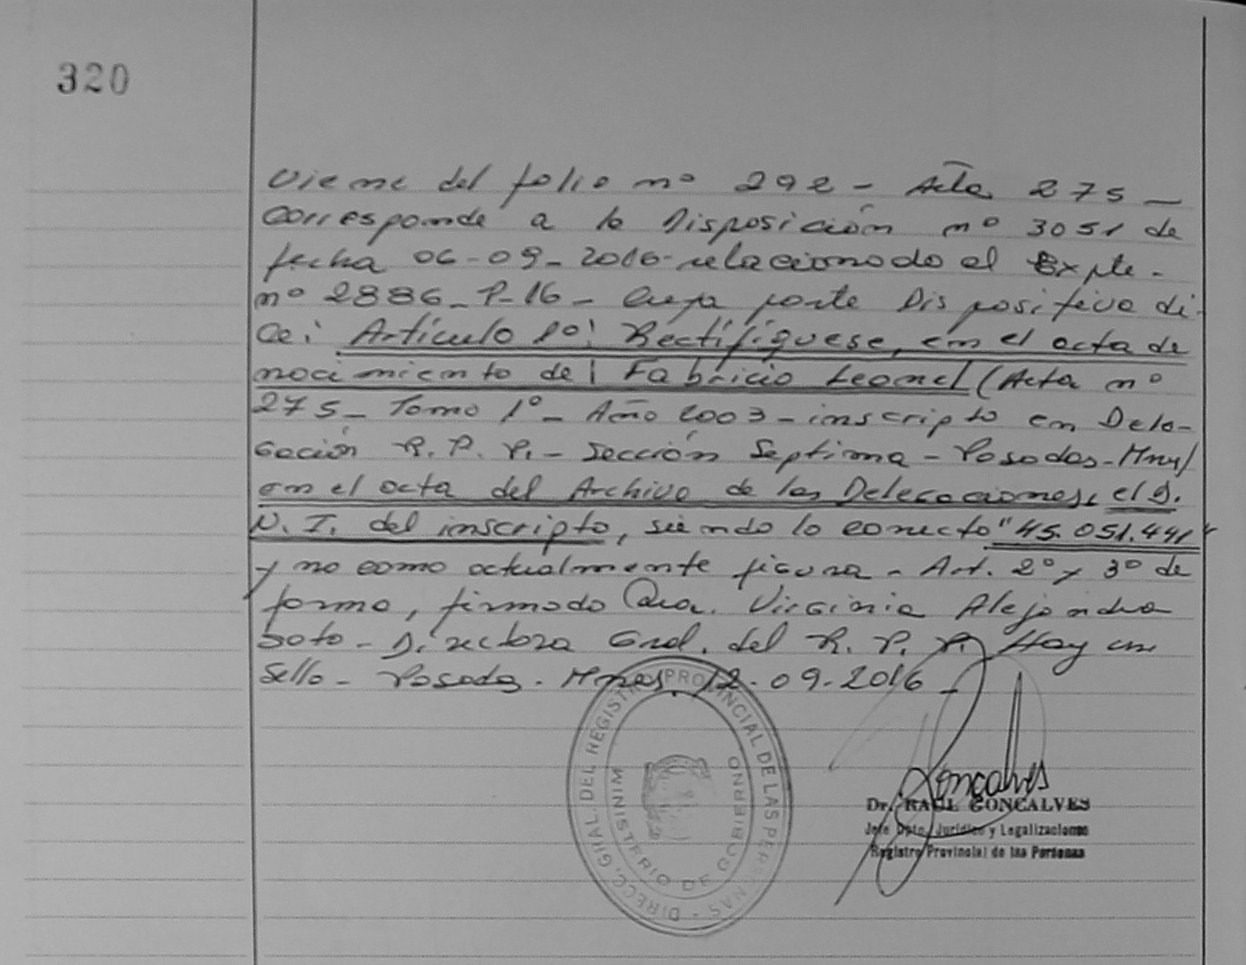 320
Viene del folio nº 292 - Acta 275 -
Corresponde a la Disposición nº 3051 de
fecha 06-09-2016-relacionado al Expte-
nº 2886-P-16- Cuya parte Dispositiva di-
ce: Artículo 1º: Rectifíquese, en el acta de
nacimiento de Fabricio Leonel (Acta nº
275- Tomo 1º- Año 2003-inscripto en Dele-
gación R.P.P.- Sección Septima-Posadas-Mnes)
en el acta del Archivo de las Delegaciones, el D.
N.I. del inscripto, siendo lo correcto "45.051.441"
y no como actualmente figura- Art. 2º y 3º de
forma, firmado Dra. Virginia Alejandra
Soto- Directora Gral. del R.P.P. Hay un
sello- Posadas. Mnes, 12-09-2016-
DIRECC. GRAL. DEL REGISTRO PROVINCIAL DE LAS PERSONAS
MINISTERIO DE GOBIERNO
Goncalves
Dr. RAUL GONCALVES
Jefe Dpto. Jurídico y Legalizaciones
Registro Provincial de las Personas